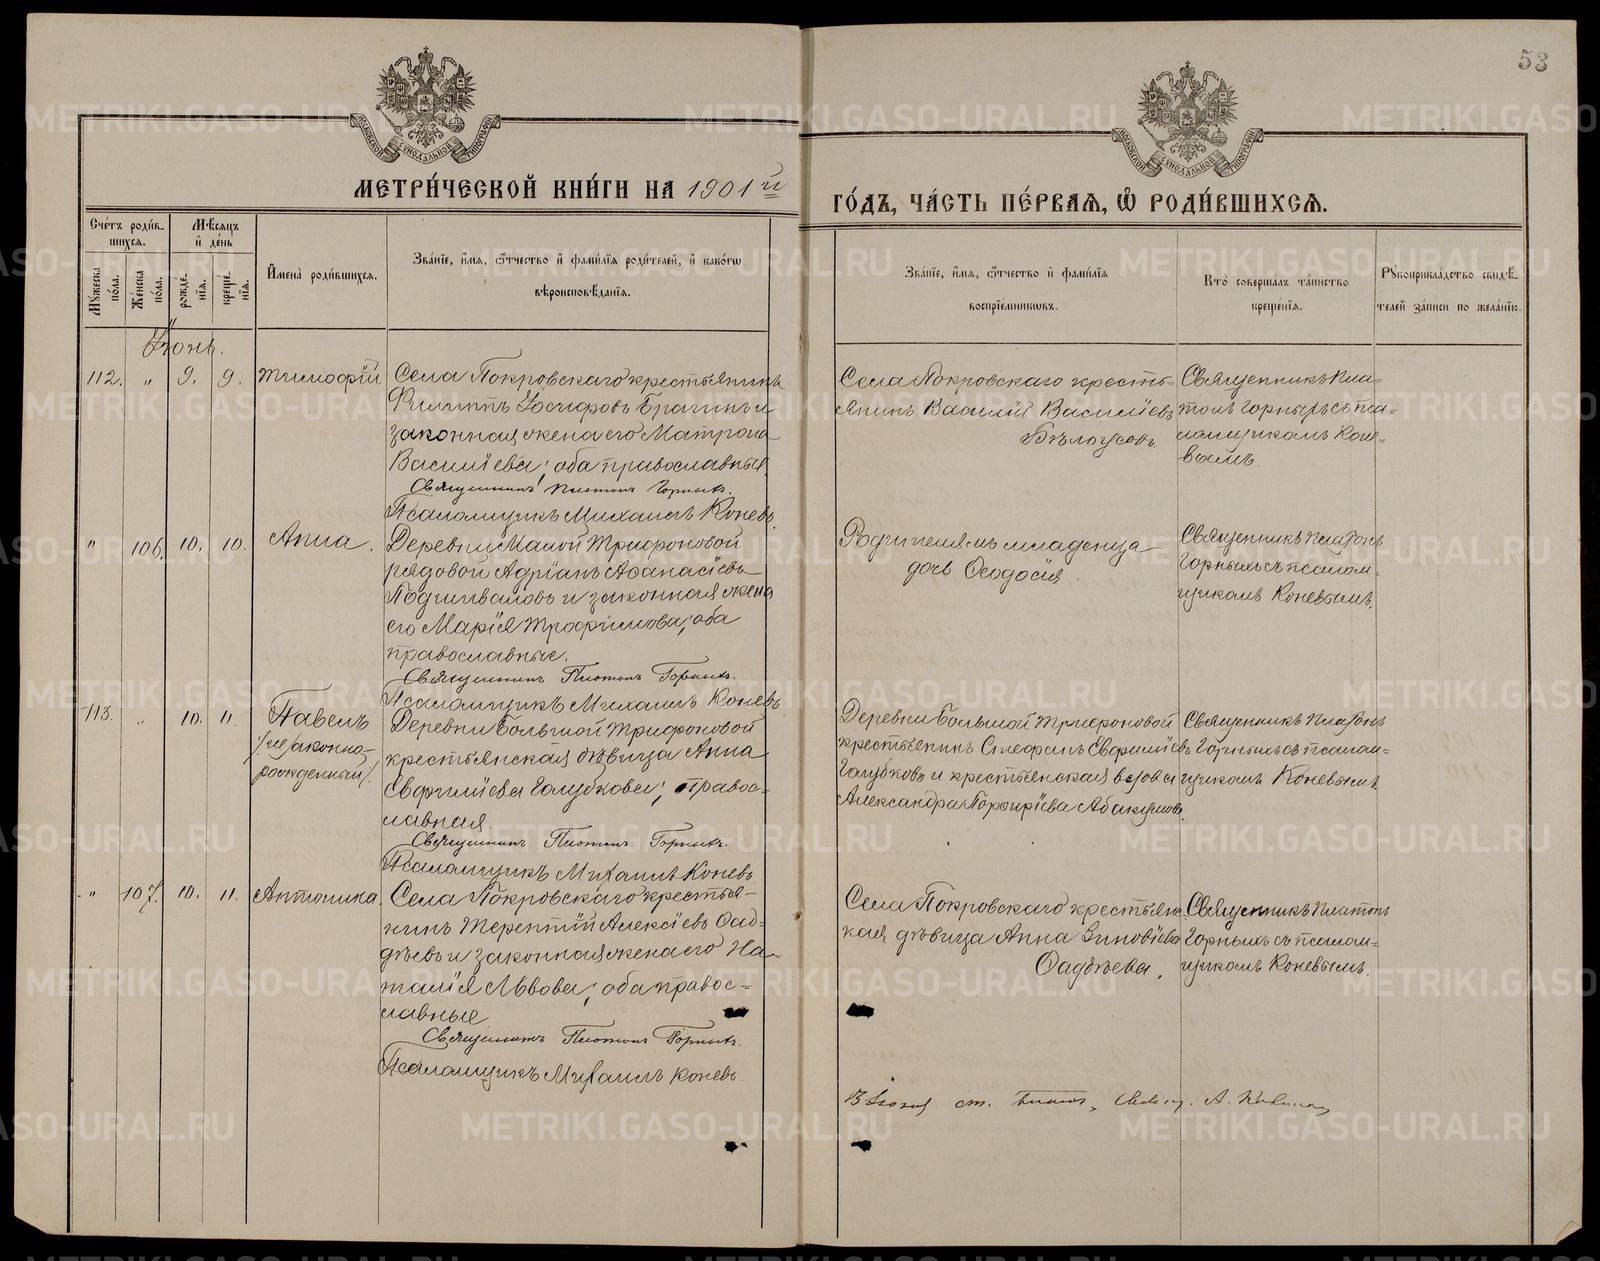 53
МОСКОВСКОЙ СѴНОДАЛЬНОЙ ТИПОГРАФІИ
МОСКОВСКОЙ СѴНОДАЛЬНОЙ ТИПОГРАФІИ
МЕТРИ́ЧЕСКОЙ КНИ́ГИ НА 1901 й
ГО́ДЪ, ЧА́СТЬ ПЕ́РВАЯ, Ѡ РОДИ́ВШИХСЯ.
Сче́тъ роди́в-
шихся.
Мѣ́сяцъ
и де́нь
Мꙋ́жеска
по́ла.
Же́нска
по́ла.
рожде́-
нїя.
креще́-
нїя.
Имена̀ роди́вшихся.
Зва́нїе, и́мя, ѻ́тчество и фами́лїя роди́телей, и како́гѡ
вѣроисповѣ́данїя.
Зва́нїе, и́мя, ѻ́тчество и фами́лїя
воспрїе́мникѡвъ.
Кто̀ соверша́лъ та́инство
креще́нїя.
Рꙋкоприкла́дство свидѣ́-
телей за́писи по жела́нїю.
Іюнь.
112. " 9. 9. Тимофѣй
Села Покровскаго крестьянинъ
Филиппъ Іосифовъ Брагинъ и
законная жена его Матрона
Васильева; оба православные
Священникъ Платонъ Горныхъ.
Псаломщикъ Михаилъ Коневъ.
Села Покровскаго кресть-
янинъ Василій Васильевъ
Бѣлоусовъ
Священникъ Пла-
тонъ Горныхъ съ пса-
ломщикомъ Коне-
вымъ.
" 106. 10. 10. Анна.
Деревни Малой Трифоновой
рядовой Адріанъ Аѳанасіевъ
Подшиваловъ и законная жена
его Марія Трофимова; оба
православные.
Священникъ Платонъ Горныхъ.
Псаломщикъ Михаилъ Коневъ.
Родителямъ младенца
дочь Ѳеодосія.
Священникъ Платонъ
Горныхъ съ псалом-
щикомъ Коневымъ.
113. " 10. 11. Павелъ
/незаконно-
рожденный/.
Деревни Большой Трифоновой
крестьянская дѣвица Анна
Евфиміева Голубкова; право-
славная.
Священникъ Платонъ Горныхъ.
Псаломщикъ Михаилъ Коневъ
Деревни Большой Трифоновой
крестьянинъ Стефанъ Евфиміевъ
Голубковъ и крестьянская вдова
Александра Порфиріева Абакумова.
Священникъ Платонъ
Горныхъ съ псалом-
щикомъ Коневымъ.
" 107. 10. 11. Антонина.
Села Покровскаго крестья-
нинъ Терентій Алексіевъ Ѳад-
дѣевъ и законная жена его На-
талія Львова; оба право-
славные
Священникъ Платонъ Горныхъ.
Псаломщикъ Михаилъ Коневъ.
Села Покровскаго крестьянс-
кая дѣвица Анна Зиновіева
Ѳаддѣева.
Священникъ Платонъ
Горныхъ съ псалом-
щикомъ Коневымъ.
METRIKI.GASO-URAL.RU